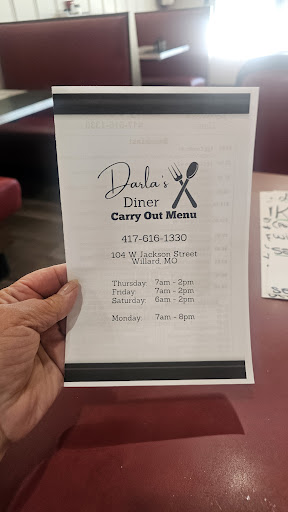 Darla's
Diner
Carry Out Menu
417-616-1330
104 W Jackson Street
Willard, MO
Thursday: 7am - 2pm
Friday: 7am - 2pm
Saturday: 6am - 2pm
Monday: 7am - 8pm